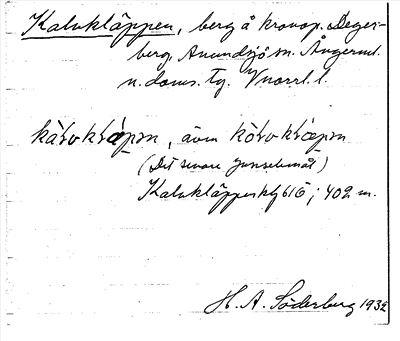 Kalvkläppen, berg å kronop. Deger-
berg, Anundsjö sn. Ångerml.
n. doms. tg. Vnorrl. l.
kàlvklápen, även kòlvklápen
(Det senare Junselemål)
Kalvkläppen 616; 402 m.
H. A. Söderberg 1932